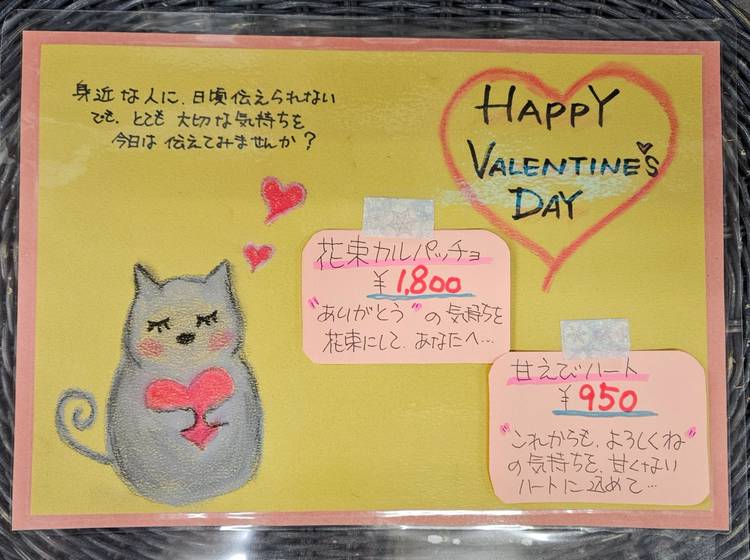 身近な人に、日頃伝えられない
でも、とても大切な気持ちを
今日は伝えてみませんか？
HAPPY
VALENTINE'S
DAY
花束カルパッチョ
¥1,800
"ありがとう"の気持ちを
花束にして、あなたへ…
甘えびハート
¥950
"これからも、よろしくね"
の気持ちを、甘くない
ハートに込めて…